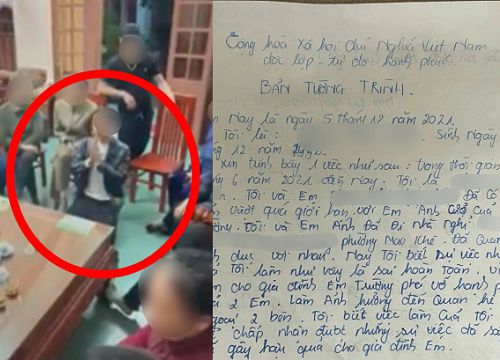 Cộng hòa xã hội chủ Nghĩa Việt Nam
độc lập - tự do hạnh phúc
BẢN TƯỜNG TRÌNH.
Nay là ngày 5 tháng 12 năm 2021.
Tôi : Sinh, Ngày
12 năm
xin trình bày 1 việc như sau : trong thời gian
6 năm 2021. đến Nay. Tôi là
Tôi và Em
vượt quá giới hạn với Em Anh
Tôi và Em Anh Đã Đi Nhà Nghỉ
phường Mao Khê. Đã Quan
dục với nhau. Nay Tôi biết sự việc
Tôi làm như vậy là sai hoàn Toàn.
cho gia đình Em Trường phá vỡ hạnh
2 Em. Làm Ảnh hưởng đến Quan hệ
2 bên. Tôi biết việc làm của tôi
chấp nhận được nhưng sự việc đã
gây hậu quả cho gia đình Em.